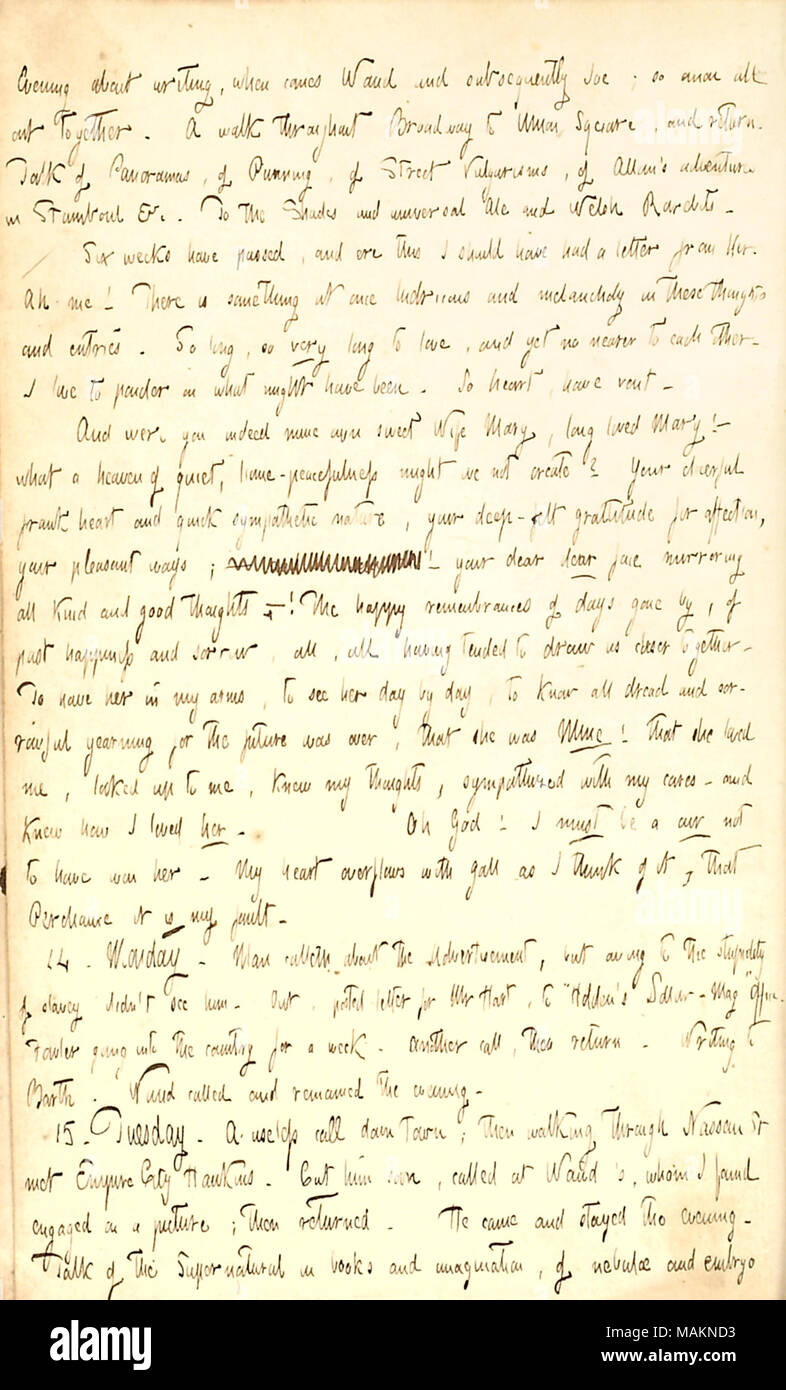 Evening about writing, when comes Waud and subsequently Joe ; so anon all
out together. A walk throughout Broadway to Union Square, and return.
Talk of Panoramas, of Punning, of Street Vulgarisms, of Allan's adventures
in Stamboul &c. To the Shades and universal Ale and Welsh Rarebits -
Six weeks have passed, and ere this I should have had a letter from Her.
Ah me! There is something at once ludicrous and melancholy in these thoughts
and entries. So long, so very long to love, and yet no nearer to each other -
I love to ponder on what might have been. So heart, have vent -
And were you indeed mine own sweet Wife Mary, long loved Mary! -
what a heaven of quiet, home-peacefulness might we not create? Your cheerful
frank heart and quick sympathetic nature, your deep-felt gratitude for affection,
your pleasant ways ; ! your dear dear face mirroring
all kind and good thoughts - ! The happy remembrances of days gone by, of
past happiness and sorrow, all, all having tended to draw us closer together -
To have her in my arms, to see her day by day, to know all dread and sor-
rowful yearning for the future was over, that she was Mine! that she loved
me, looked up to me, knew my thoughts, sympathized with my cares - and
knew how I loved her - Oh God! I must be a cur not
to have won her - My heart overflows with gall as I think of it, that
Perchance it is my fault -
14. Monday. Man calleth about the Advertisement, but owing to the stupidity
of slavey didn't see him. Out, posted letter for Mr Hart, to "Holden's Dollar-Mag" Office.
Fowler going into the country for a week. Another call, then return. Writing to
Barth. Waud called and remained the evening -
15. Tuesday. A useless call down town ; then walking through Nassau St
met Empire City Hawkins. Cut him soon, called at Waud's, whom I found
engaged on a picture ; then returned. He came and stayed the evening -
Talk of the Supernatural in books and imagination, of nebulæ and embryo
alamy
Image ID: MAKND3
www.alamy.com